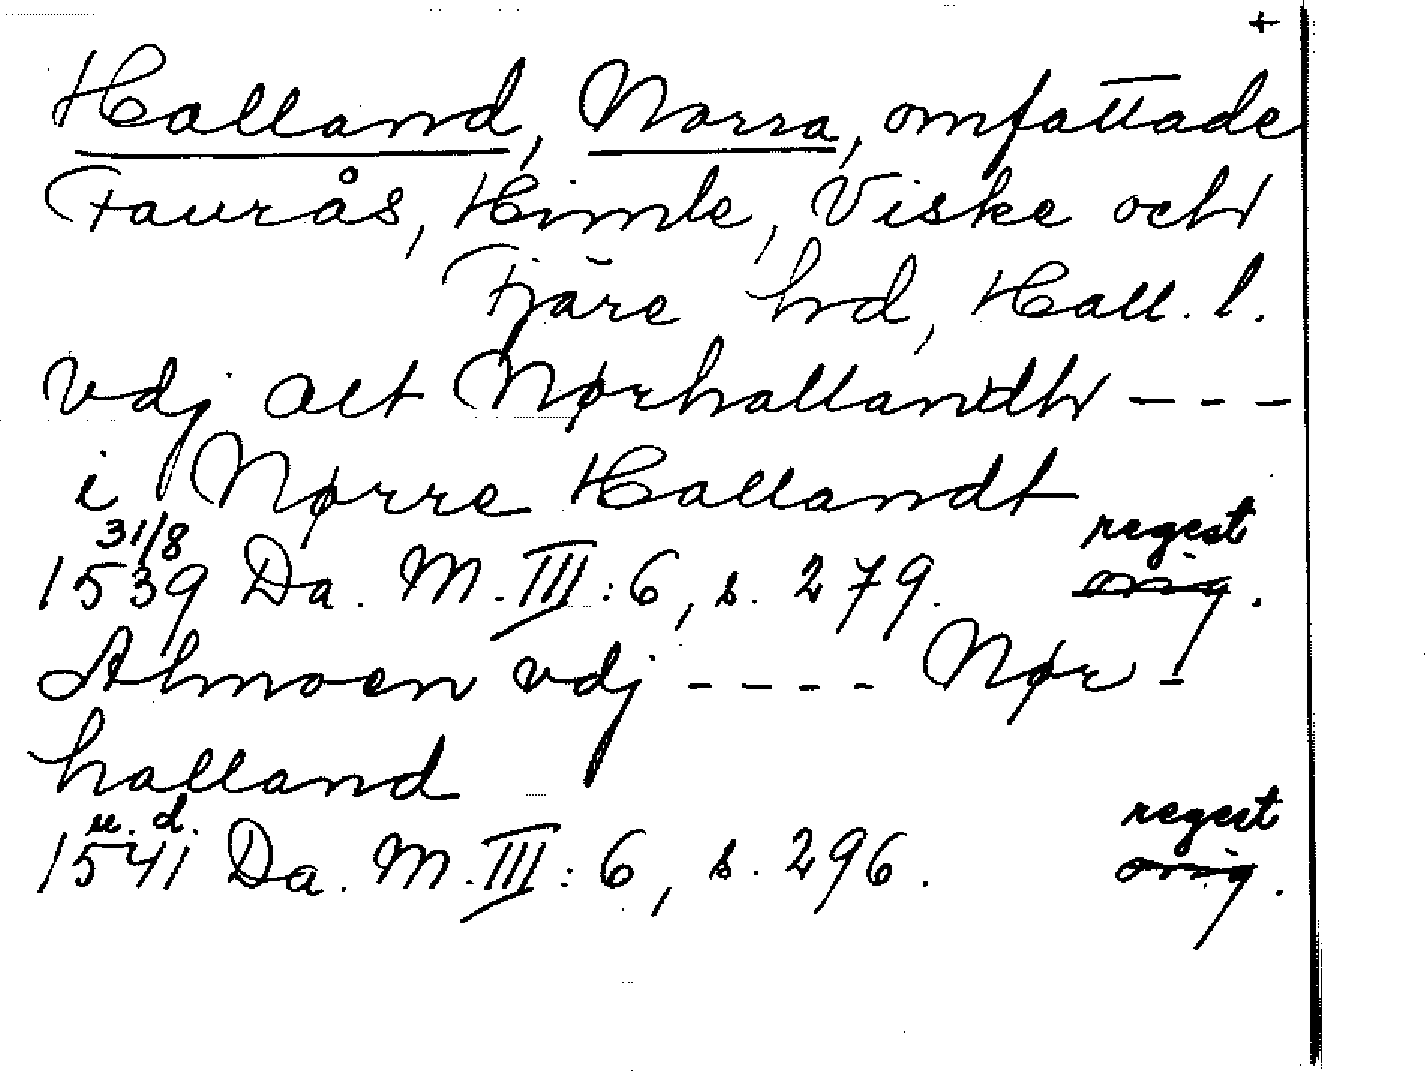 +
Halland, Norra, omfattade
Faurås, Himle, Viske och
Fjäre hd, Hall. l.
vdj alt Nørhallandh ---
i Nørre Hallandt
31/8 regest
1539 Da. M. III:6, s. 279. orig.
Almoen vdj ---- Nør-
halland
u. d. regest
1541 Da. M. III:6, s. 296. orig.